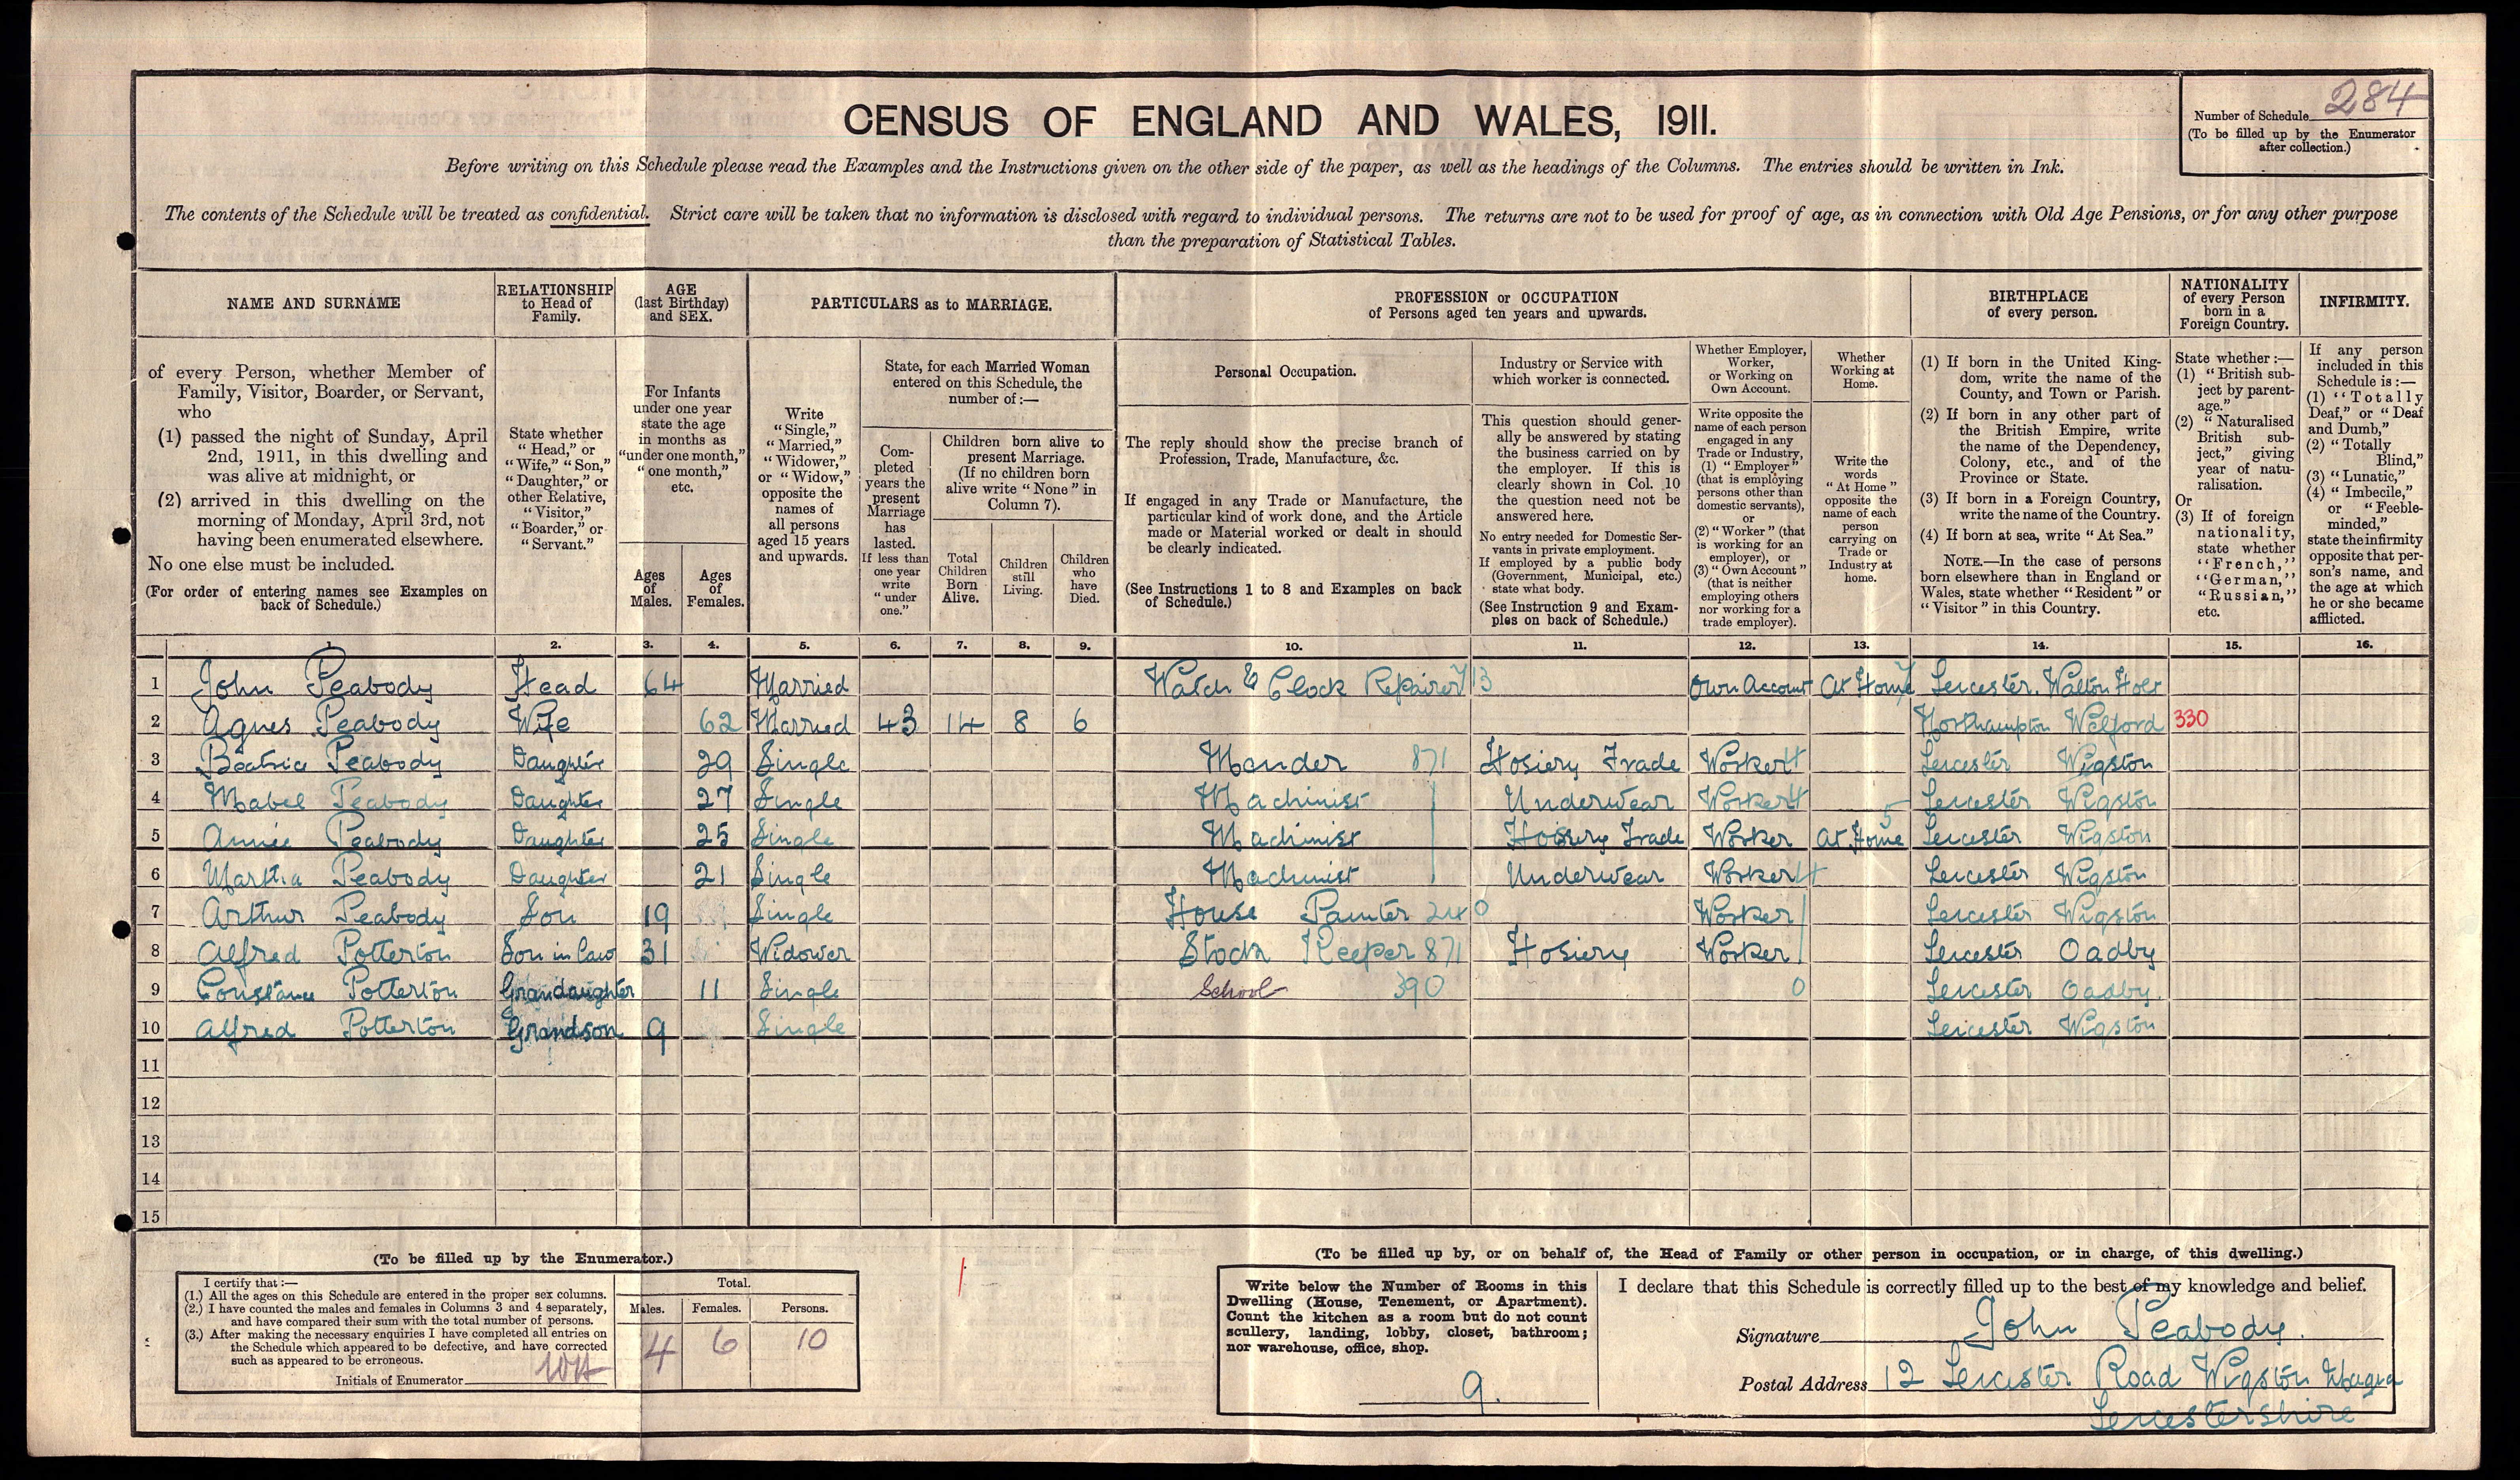 Number of Schedule 284
(To be filled up by the Enumerator after collection.)
CENSUS OF ENGLAND AND WALES, 1911.
Before writing on this Schedule please read the Examples and the Instructions given on the other side of the paper, as well as the headings of the Columns. The entries should be written in Ink.
The contents of the Schedule will be treated as confidential. Strict care will be taken that no information is disclosed with regard to individual persons. The returns are not to be used for proof of age, as in connection with Old Age Pensions, or for any other purpose
than the preparation of Statistical Tables.
NAME AND SURNAME
of every Person, whether Member of
Family, Visitor, Boarder, or Servant,
who
(1) passed the night of Sunday, April
2nd, 1911, in this dwelling and
was alive at midnight, or
(2) arrived in this dwelling on the
morning of Monday, April 3rd, not
having been enumerated elsewhere.
No one else must be included.
(For order of entering names see Examples on
back of Schedule.)
RELATIONSHIP
to Head of
Family.
State whether
"Head," or
"Wife," "Son,"
"Daughter," or
other Relative,
"Visitor,"
"Boarder," or
"Servant."
AGE
(last Birthday)
and SEX.
For Infants
under one year
state the age
in months as
"under one month,"
"one month,"
etc.
Ages
of
Males.
Ages
of
Females.
PARTICULARS as to MARRIAGE.
Write
"Single,"
"Married,"
"Widower,"
or "Widow,"
opposite the
names of
all persons
aged 15 years
and upwards.
State, for each Married Woman
entered on this Schedule, the
number of :—
Completed
years the
present
Marriage
has
lasted.
If less than
one year
write
"under
one."
Children born alive to
present Marriage.
(If no children born
alive write "None" in
Column 7).
Total
Children
Born
Alive.
Children
still
Living.
Children
who
have
Died.
PROFESSION or OCCUPATION
of Persons aged ten years and upwards.
Personal Occupation.
The reply should show the precise branch of
Profession, Trade, Manufacture, &c.
If engaged in any Trade or Manufacture, the
particular kind of work done, and the Article
made or Material worked or dealt in should
be clearly indicated.
(See Instructions 1 to 8 and Examples on back
of Schedule.)
Industry or Service with
which worker is connected.
This question should generally
be answered by stating
the business carried on by
the employer. If this is
clearly shown in Col. 10
the question need not be
answered here.
No entry needed for Domestic Servants
in private employment.
If employed by a public body
(Government, Municipal, etc.)
state what body.
(See Instruction 9 and Examples
on back of Schedule.)
Whether Employer,
Worker,
or Working on
Own Account.
Write opposite the
name of each person
engaged in any
Trade or Industry,
(1) "Employer"
(that is employing
persons other than
domestic servants),
or
(2) "Worker" (that
is working for an
employer), or
(3) "Own Account"
(that is neither
employing others
nor working for a
trade employer).
Whether
Working at
Home.
Write the
words
"At Home"
opposite the
name of each
person
carrying on
Trade or
Industry at
home.
BIRTHPLACE
of every person.
(1) If born in the United Kingdom,
write the name of the
County, and Town or Parish.
(2) If born in any other part of
the British Empire, write
the name of the Dependency,
Colony, etc., and of the
Province or State.
(3) If born in a Foreign Country,
write the name of the Country.
(4) If born at sea, write "At Sea."
NOTE.—In the case of persons
born elsewhere than in England or
Wales, state whether "Resident" or
"Visitor" in this Country.
NATIONALITY
of every Person
born in a
Foreign Country.
State whether :—
(1) "British subject
by parentage."
(2) "Naturalised
British subject,"
giving
year of naturalisation.
Or
(3) If of foreign
nationality,
state whether
"French,"
"German,"
"Russian,"
etc.
INFIRMITY.
If any person
included in this
Schedule is :—
(1) "Totally
Deaf," or "Deaf
and Dumb,"
(2) "Totally
Blind,"
(3) "Lunatic,"
(4) "Imbecile,"
or "Feeble-
minded,"
state the infirmity
opposite that person's
name, and
the age at which
he or she became
afflicted.
1. 2. 3. 4. 5. 6. 7. 8. 9. 10. 11. 12. 13. 14. 15. 16.
1 John Peabody Head 64 Married Watch & Clock Repairer 713 Own Account At Home Leicester. Walton
2 Agnes Peabody Wife 62 Married 43 14 8 6 Northampton Welford 330
3 Beatrice Peabody Daughter 29 Single Mender 871 Hosiery Trade Worker Leicester Wigston
4 Mabel Peabody Daughter 27 Single Machinist Underwear Worker Leicester Wigston
5 Annie Peabody Daughter 25 Single Machinist Hosiery Trade Worker At Home 5 Leicester Wigston
6 Martha Peabody Daughter 21 Single Machinist Underwear Worker Leicester Wigston
7 Arthur Peabody Son 19 Single House Painter 240 Worker Leicester Wigston
8 Alfred Potterton Son in law 31 Widower Stock Keeper 871 Hosiery Worker Leicester Oadby
9 Constance Potterton Grandaughter 11 Single School 390 0 Leicester Oadby.
10 Alfred Potterton Grandson 9 Single Leicester Wigston
11
12
13
14
15
(To be filled up by the Enumerator.)
I certify that :—
(1.) All the ages on this Schedule are entered in the proper sex columns.
(2.) I have counted the males and females in Columns 3 and 4 separately,
and have compared their sum with the total number of persons.
(3.) After making the necessary enquiries I have completed all entries on
the Schedule which appeared to be defective, and have corrected
such as appeared to be erroneous.
Initials of Enumerator
Total.
Males. Females. Persons.
4 6 10
(To be filled up by, or on behalf of, the Head of Family or other person in occupation, or in charge, of this dwelling.)
Write below the Number of Rooms in this
Dwelling (House, Tenement, or Apartment).
Count the kitchen as a room but do not count
scullery, landing, lobby, closet, bathroom;
nor warehouse, office, shop.
9.
I declare that this Schedule is correctly filled up to the best of my knowledge and belief.
Signature John Peabody.
Postal Address 12 Leicester Road Wigston Magna
Leicestershire